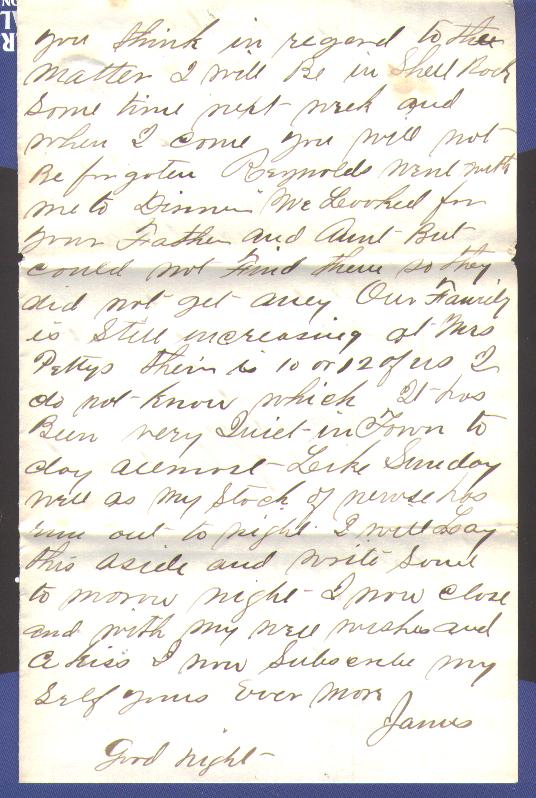 you think in regard to the
matter I will Be in Shell Rock
some time next week and
when I come you will not
Be forgoten Reynolds went with
me to Dinner We Looked for
your Father and Aunt But
could not Find them so they
did not get any Our Family
is Still increasing at Mrs
Pettys their is 10 or 12 of us I
do not know which It has
Been very Quiet in Town to
day allmost Like Sunday
well as my Stock of newse has
run out to night I will Lay
this aside and write Some
to morow night I now close
and with my well wishes and
a kiss I now Subscribe my
Self yours Ever More
James
Good night